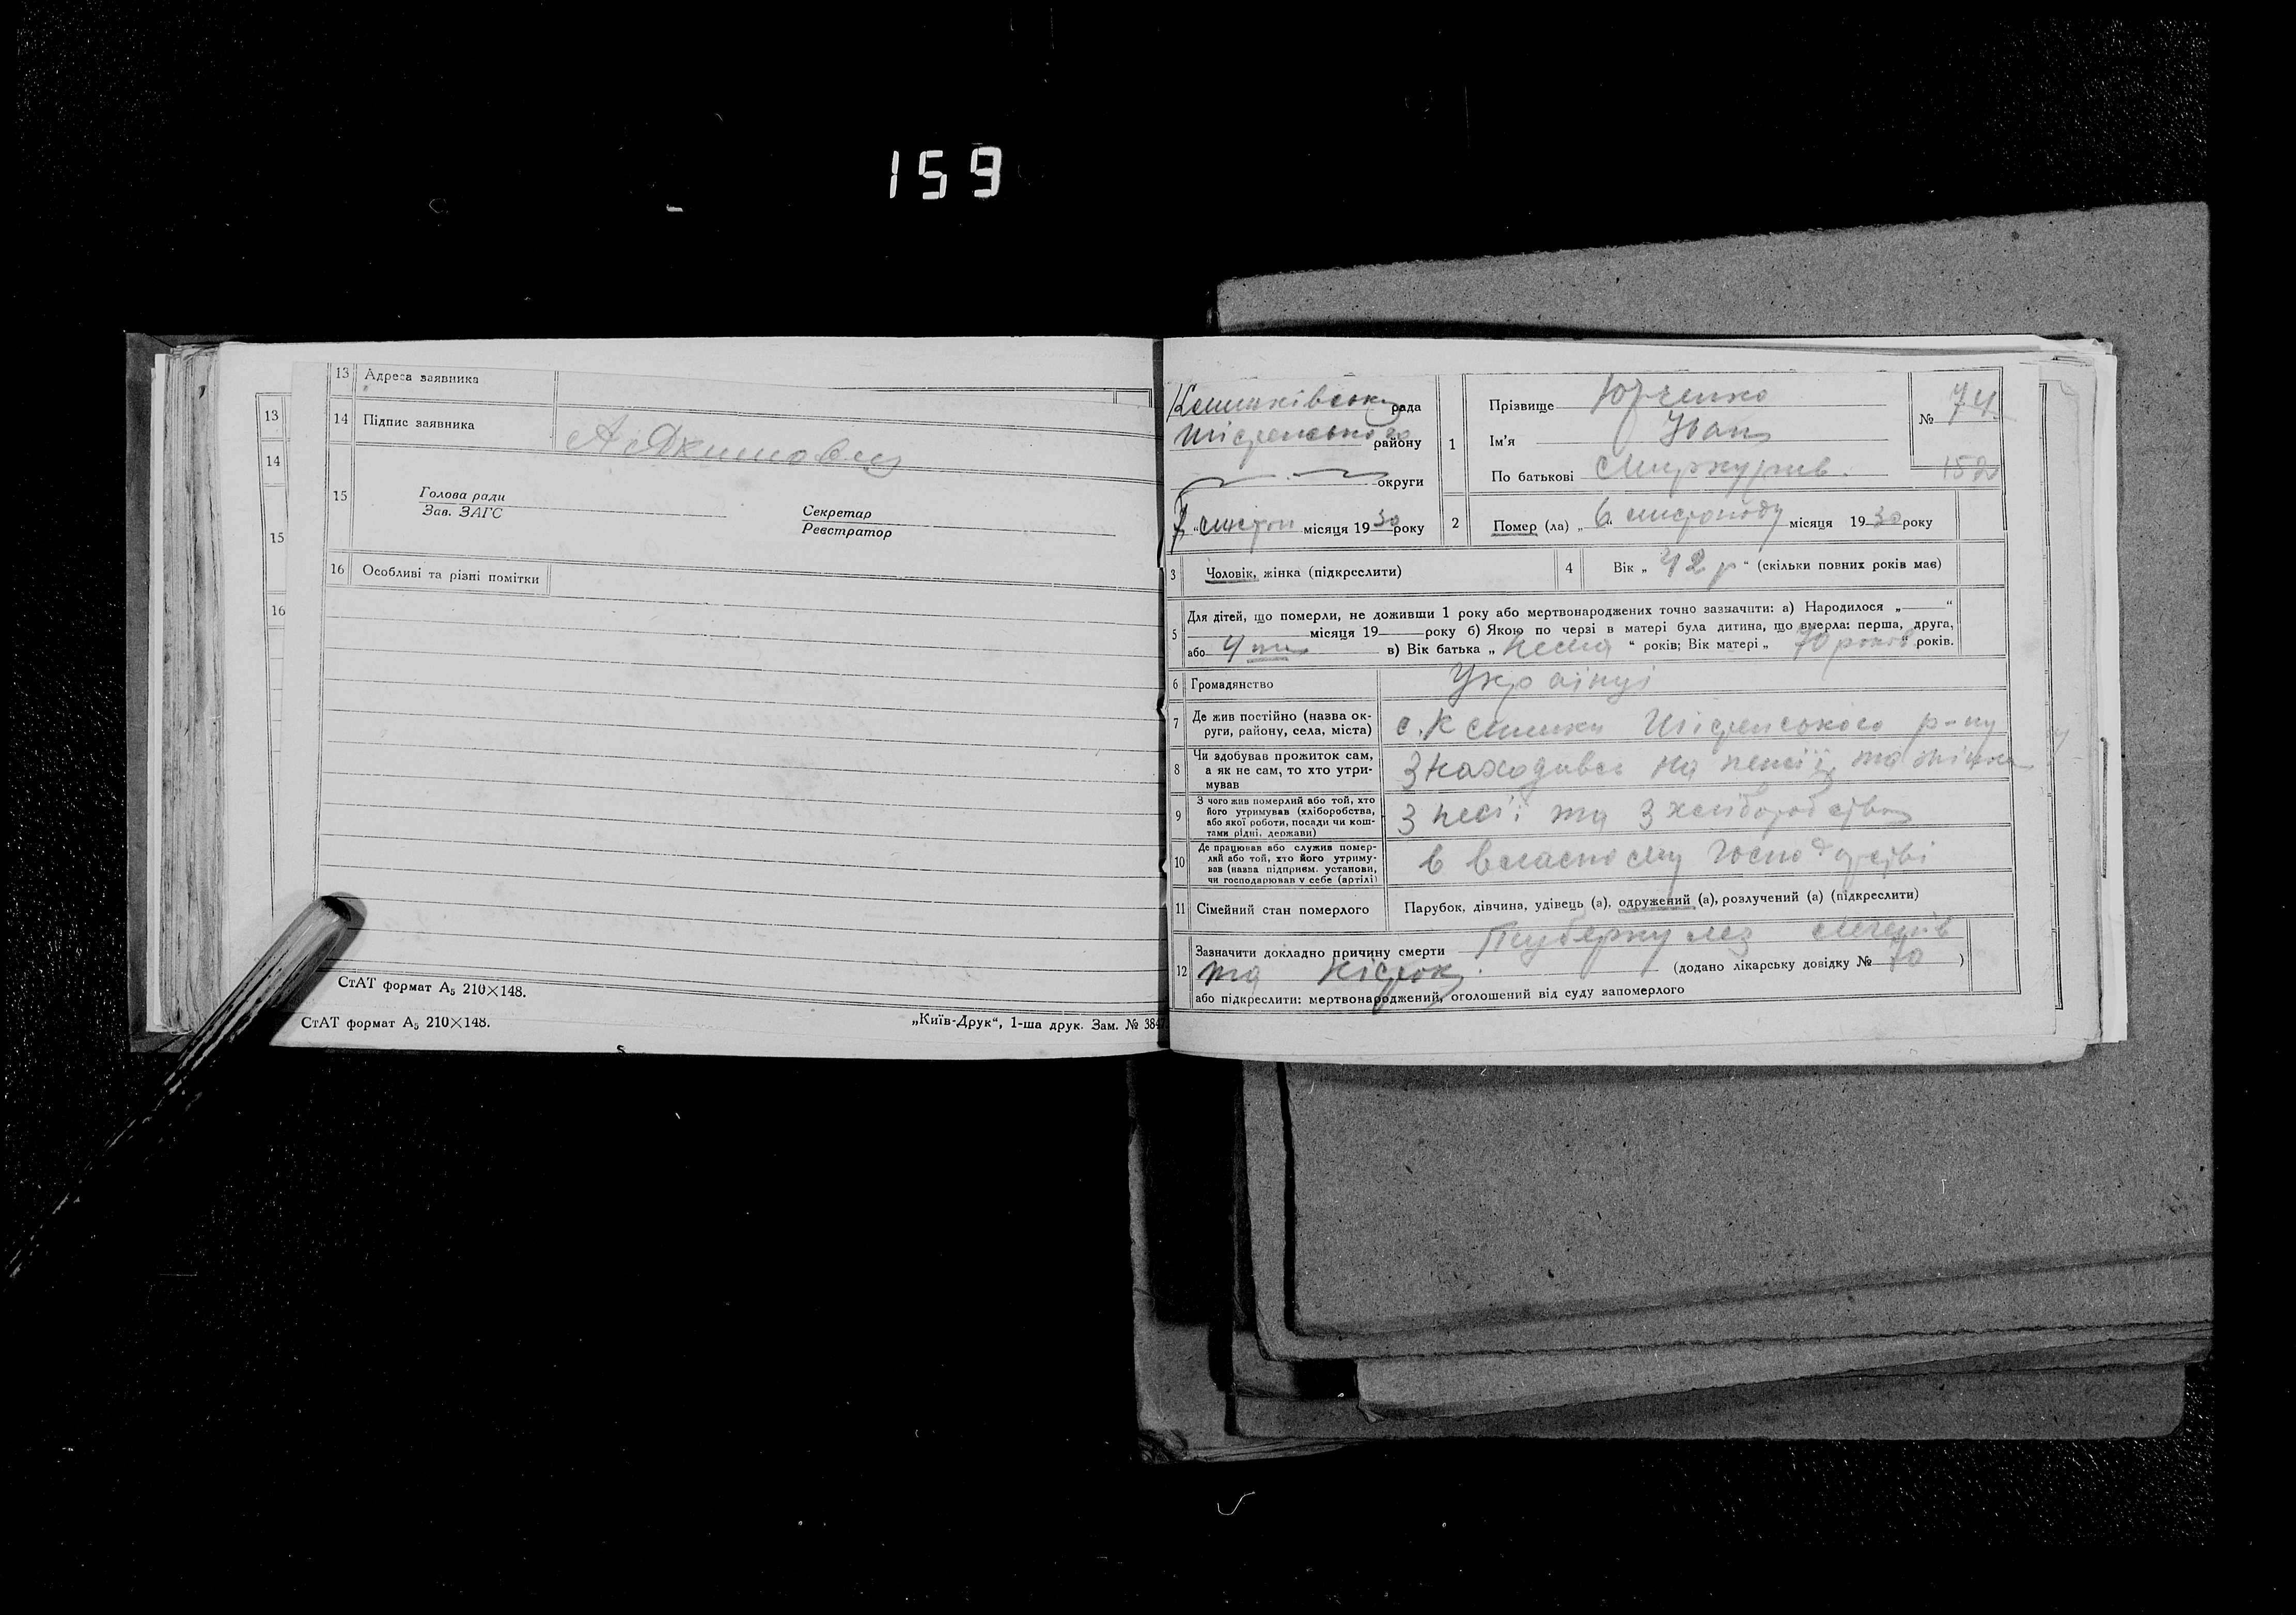 159
13 Адреса заявника
14 Підпис заявника
15 Голова ради
Зав. ЗАГС
Секретар
Реєстратор
16 Особливі та різні помітки
13
14
15
16
СтАТ формат А₅ 210×148.
СтАТ формат А₅ 210×148.
„Київ-Друк“, 1-ша друк. Зам. № 384
рада
району
округи
7 " листоп місяця 1930 року
1 Прізвище Юрченко
Ім'я Іван
По батькові
№ 74
2 Помер (ла) „ 6 " листопаду місяця 1930 року
3 Чоловік, жінка (підкреслити)
4 Вік „ 42 р " (скільки повних років має)
5 Для дітей, що померли, не доживши 1 року або мертвонароджених точно зазначити: а) Народилося „ — “
місяця 19 — року б) Якою по черзі в матері була дитина, що вмерла: перша, друга,
або 4 в) Вік батька „ нема “ років; Вік матері „ 70 років “ років.
6 Громадянство Українці
7 Де жив постійно (назва округи, району, села, міста) с. р-ну
8 Чи здобував прожиток сам, а як не сам, то хто утримував Знаходивсь на пенсії та
9 З чого жив померлий або той, хто його утримував (хліборобства, або якої роботи, посади чи коштами рідні, держави) З песії та з хліборобства
10 Де працював або служив померлий або той, хто його утримував (назва підприєм. установи, чи господарював у себе (артілі) в власному господарстві
11 Сімейний стан померлого Парубок, дівчина, удівець (а), одружений (а), розлучений (а) (підкреслити)
12 Зазначити докладно причину смерти Туберкулез легенів
та кісток. (додано лікарську довідку № 70 )
або підкреслити: мертвонароджений, оголошений від суду запомерлого